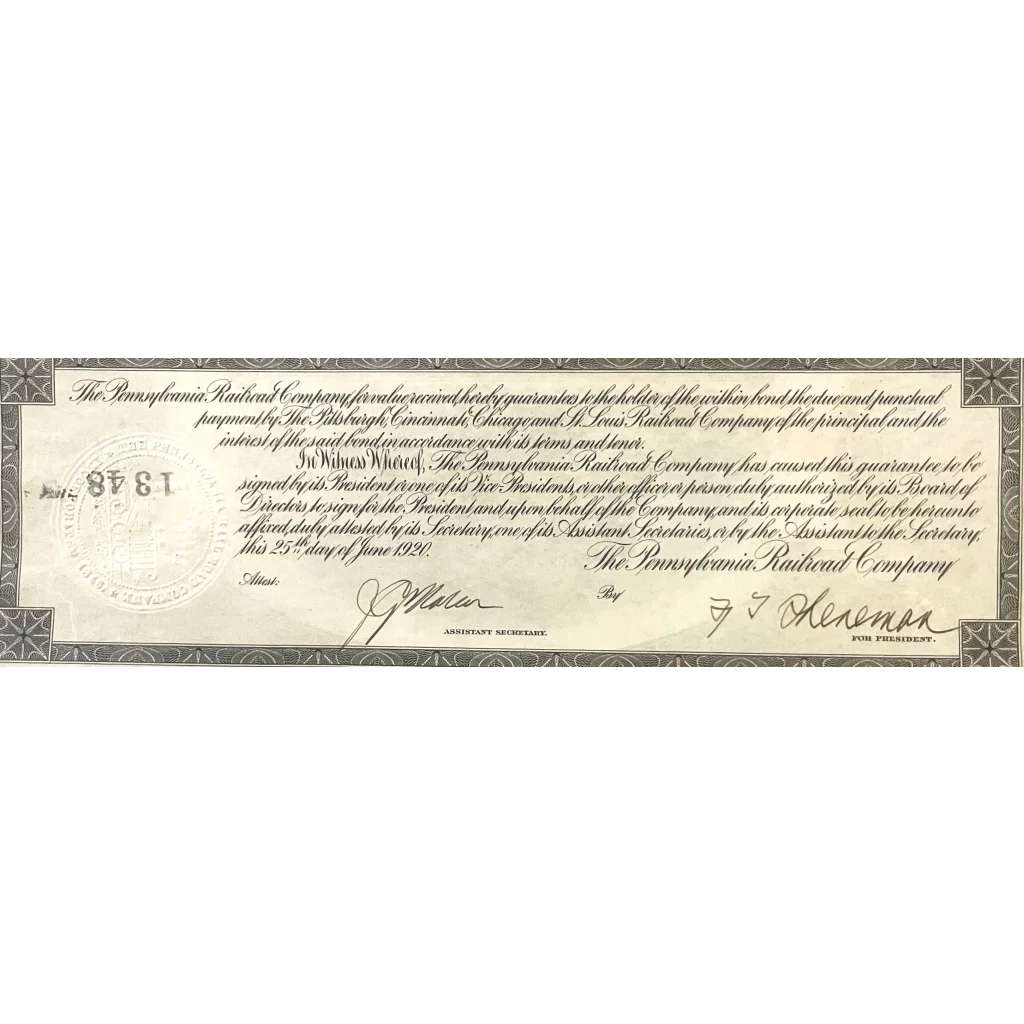 The Pennsylvania Railroad Company, for value received, hereby guarantees to the holder of the within bond, the due and punctual
payment by The Pittsburgh, Cincinnati, Chicago and St. Louis Railroad Company, of the principal, and the
interest, of the said bond, in accordance with its terms and tenor.
In Witness Whereof, The Pennsylvania Railroad Company, has caused this guarantee to be
signed by its President or one of its Vice-Presidents, or other officer or person, duly authorized by its Board of
Directors to sign for the President and upon behalf of the Company, and its corporate seal to be hereunto
affixed, duly attested by its Secretary, one of its Assistant Secretaries, or by the Assistant to the Secretary,
this 25th day of June 1920.
The Pennsylvania Railroad Company
Attest:
By
ASSISTANT SECRETARY.
FOR PRESIDENT.
1348
THE PENNSYLVANIA RAILROAD COMPANY